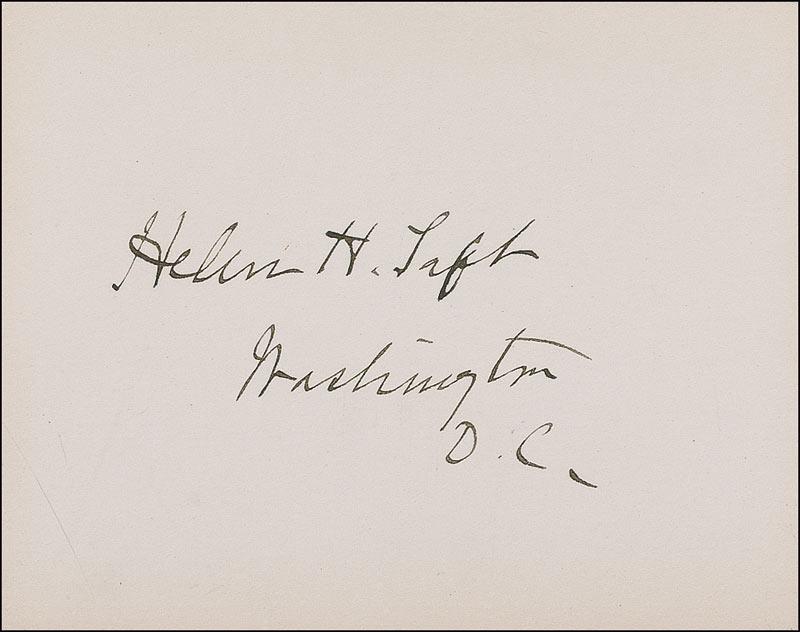 Helen H. Taft
Washington
D.C.